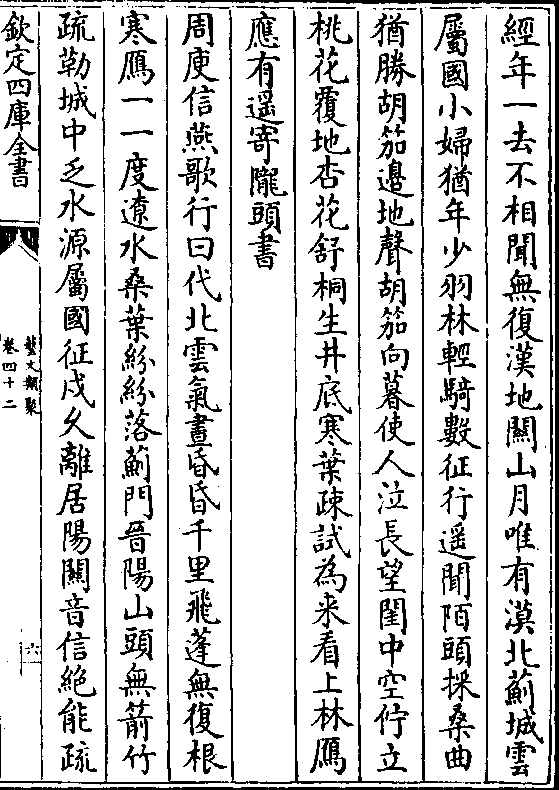 經年一去不相聞無復漢地闗山月唯有漠北薊城雲
屬國小婦猶年少羽林輕騎數征行遥聞陌頭採桑曲
猶勝胡笳邊地聲胡笳向暮使人泣長望閨中空佇立
桃花覆地杏花舒桐生井底寒葉疎試為來看上林鴈
應有遥寄隴頭書
周庾信燕歌行曰代北雲氣晝昏昏千里飛蓬無復根
寒鴈一一度遼水桑葉紛紛落薊門晉陽山頭無箭竹
疏勒城中乏水源屬國征戍久離居陽闗音信絶能疏
欽定四庫全書
藝文類聚
卷四十二
六